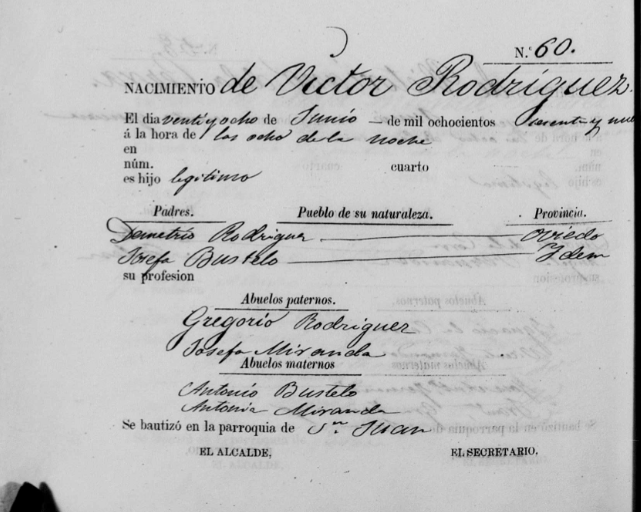 N.º 60.
NACIMIENTO de Victor Rodriguez.
El dia venti y ocho de Junio — de mil ochocientos
á la hora de las ocho de la noche
en
núm. cuarto
es hijo legitimo
Padres. Pueblo de su naturaleza. Provincia.
Demetrio Rodriguez — Oviedo
Josefa Bustelo — Idem
su profesion
Abuelos paternos.
Gregorio Rodriguez
Josefa Miranda
Abuelos maternos
Antonio Bustelo
Antonia Miranda
Se bautizó en la parroquia de Sn Juan
EL ALCALDE, EL SECRETARIO.